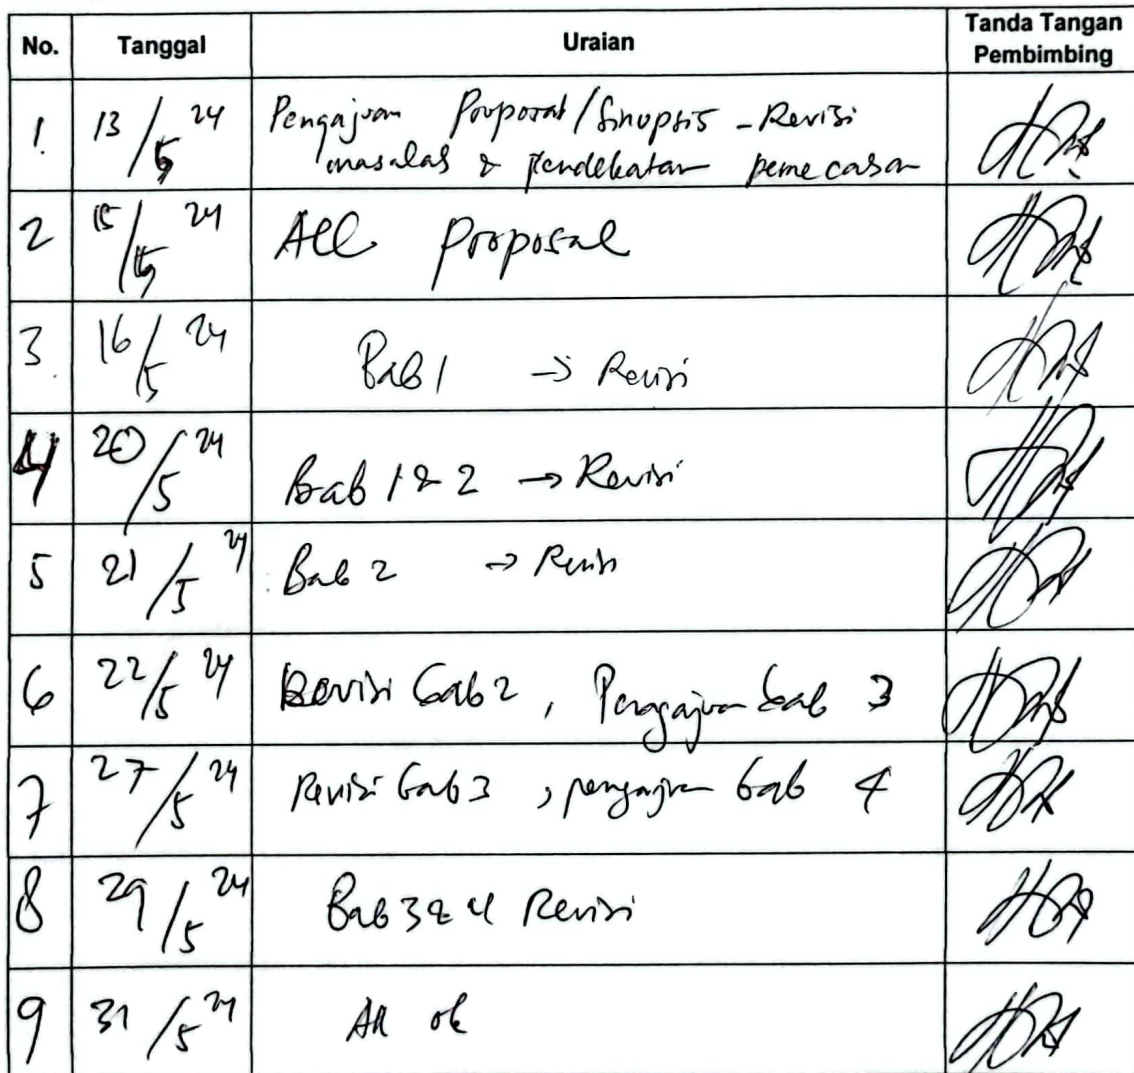 No. Tanggal Uraian Tanda Tangan Pembimbing
1. 13/5 24 Pengajuan Proposal/Sinopsis - Revisi
masalah & pendekatan pemecasan
2 15/5 24 Acc Proposal
3. 16/5 24 Bab 1 → Revisi
4 20/5 24 Bab 1 & 2 → Revisi
5 21/5 24 Bab 2 → Revisi
6 22/5 24 Revisi bab 2, Pengajuan bab 3
7 27/5 24 Revisi bab 3, pengajuan bab 4
8 29/5 24 Bab 3 & 4 Revisi
9 31/5 24 All ok